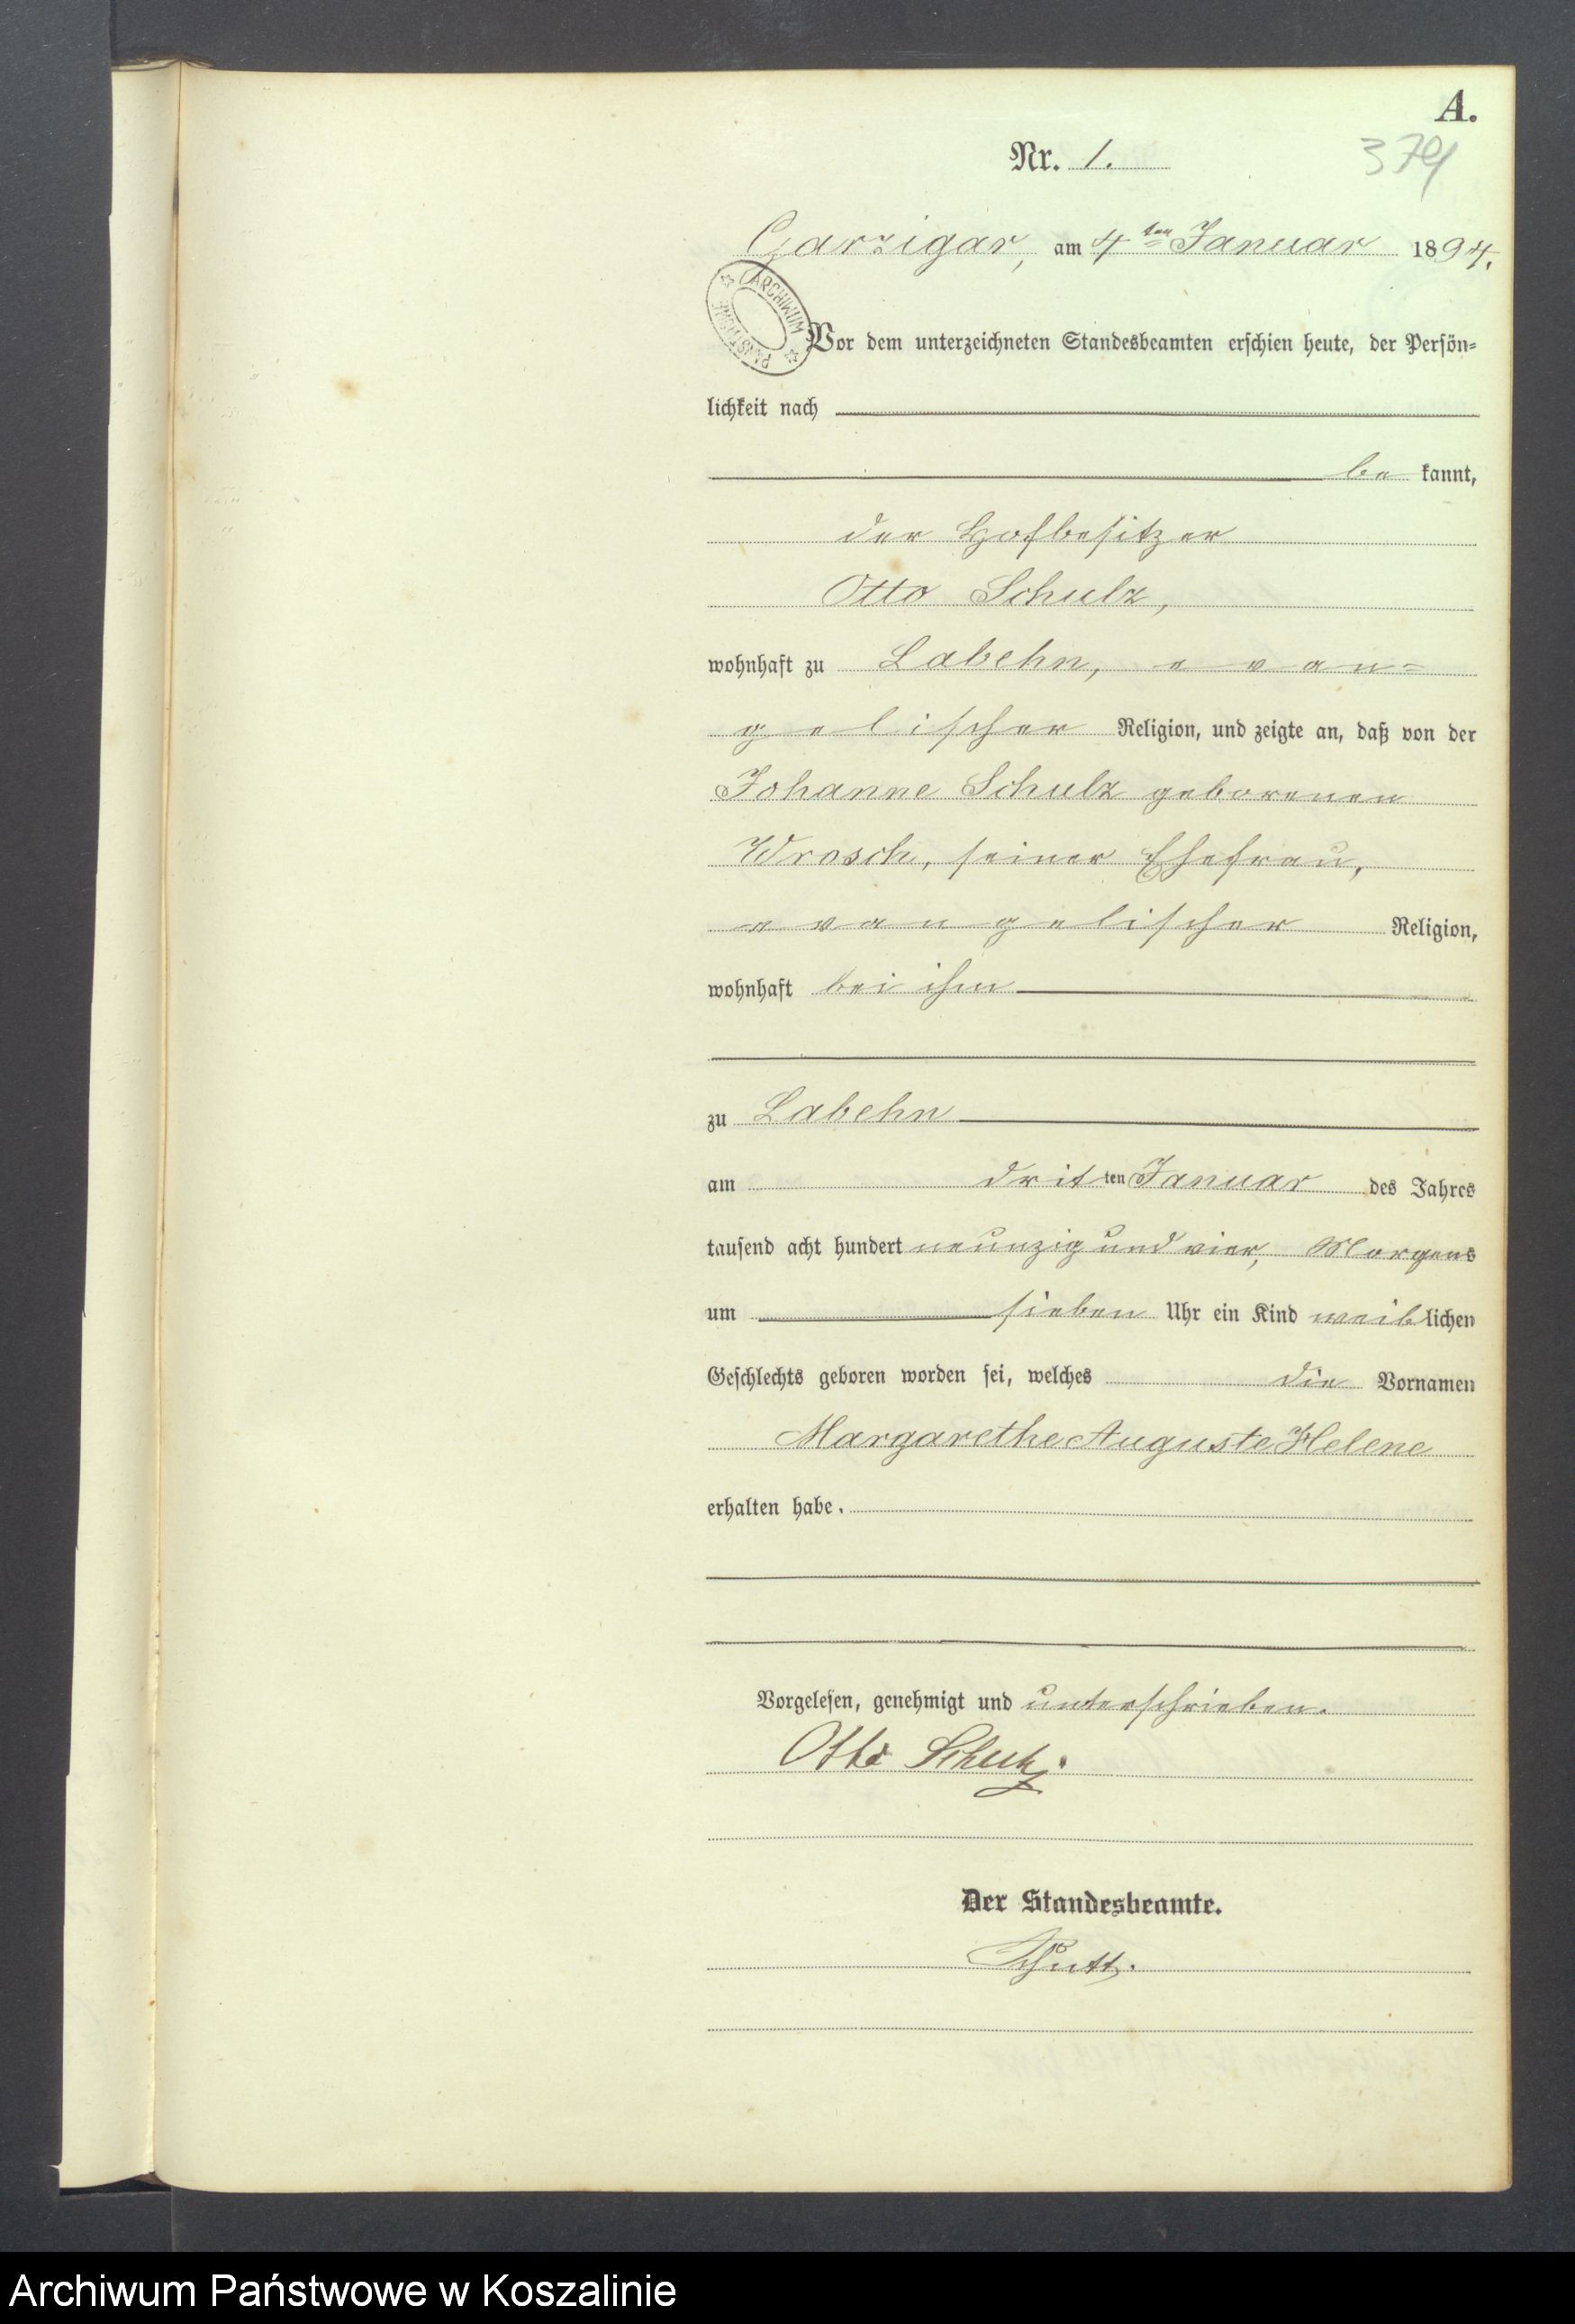 A.
Nr. 1.
379
Garzigar, am 4ten Januar 1894.
ARCHIWUM PAŃSTWOWE
Vor dem unterzeichneten Standesbeamten erschien heute, der Persön=
lichkeit nach
be kannt,
der Hofbesitzer
Otto Schulz,
wohnhaft zu Labehn, evan=
gelischer Religion, und zeigte an, daß von der
Johanne Schulz geborenen
Wrosch, seiner Ehefrau,
evangelischer Religion,
wohnhaft bei ihm
zu Labehn
am dritten Januar des Jahres
tausend acht hundert neunzig und vier, Morgens
um sieben Uhr ein Kind weiblichen
Geschlechts geboren worden sei, welches die Vornamen
Margarethe Auguste Helene
erhalten habe.
Vorgelesen, genehmigt und unterschrieben.
Otto Schulz.
Der Standesbeamte.
Archiwum Państwowe w Koszalinie